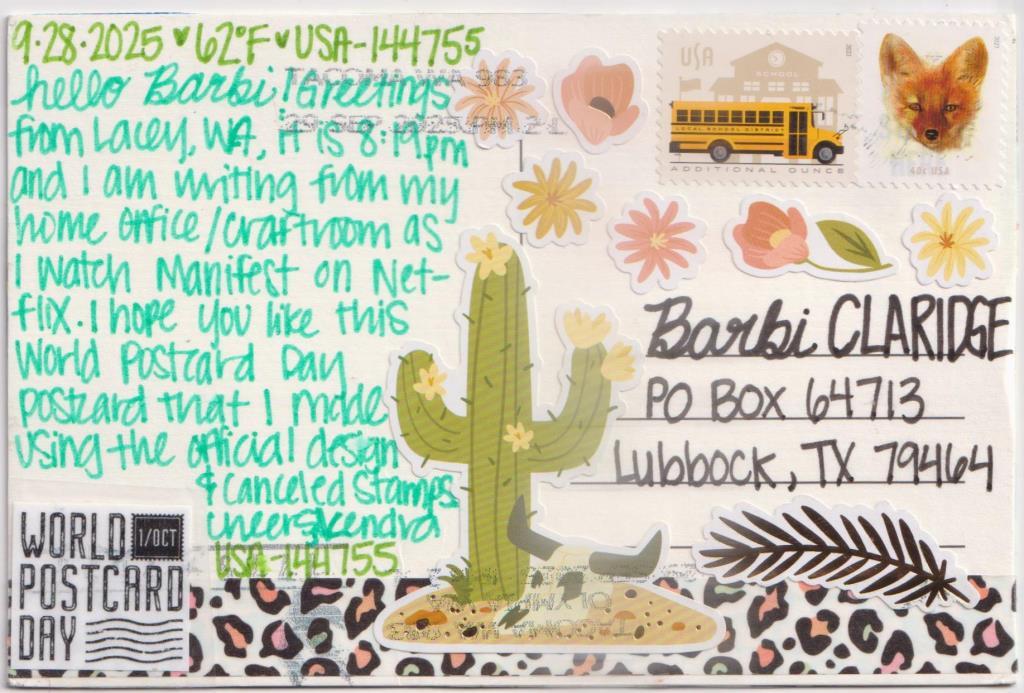 9·28·2025 ♥ 62°F ♥ USA-144755
hello Barbi! Greetings
from Lacey, WA, it is 8:19pm
and I am writing from my
home office/craftroom as
I watch Manifest on Net-
flix. I hope you like this
World Postcard Day
postcard that I made
using the official design
& canceled stamps
cheers, Kendra
USA-144755
WORLD
1/OCT
POSTCARD
DAY
TACOMA WA 983
29 SEP 2025 PM 2 L
USA
2023
SCHOOL
LOCAL SCHOOL DISTRICT
ADDITIONAL OUNCE
2021
40c USA
Barbi CLARIDGE
PO BOX 64713
Lubbock, TX 79464
OLYMPIA
TACOMA WA